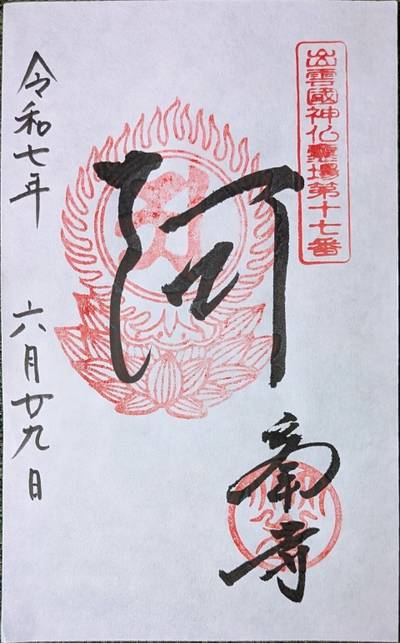 出雲國神仏靈場第十七番
阿
峯寺
令和七年 六月廿九日